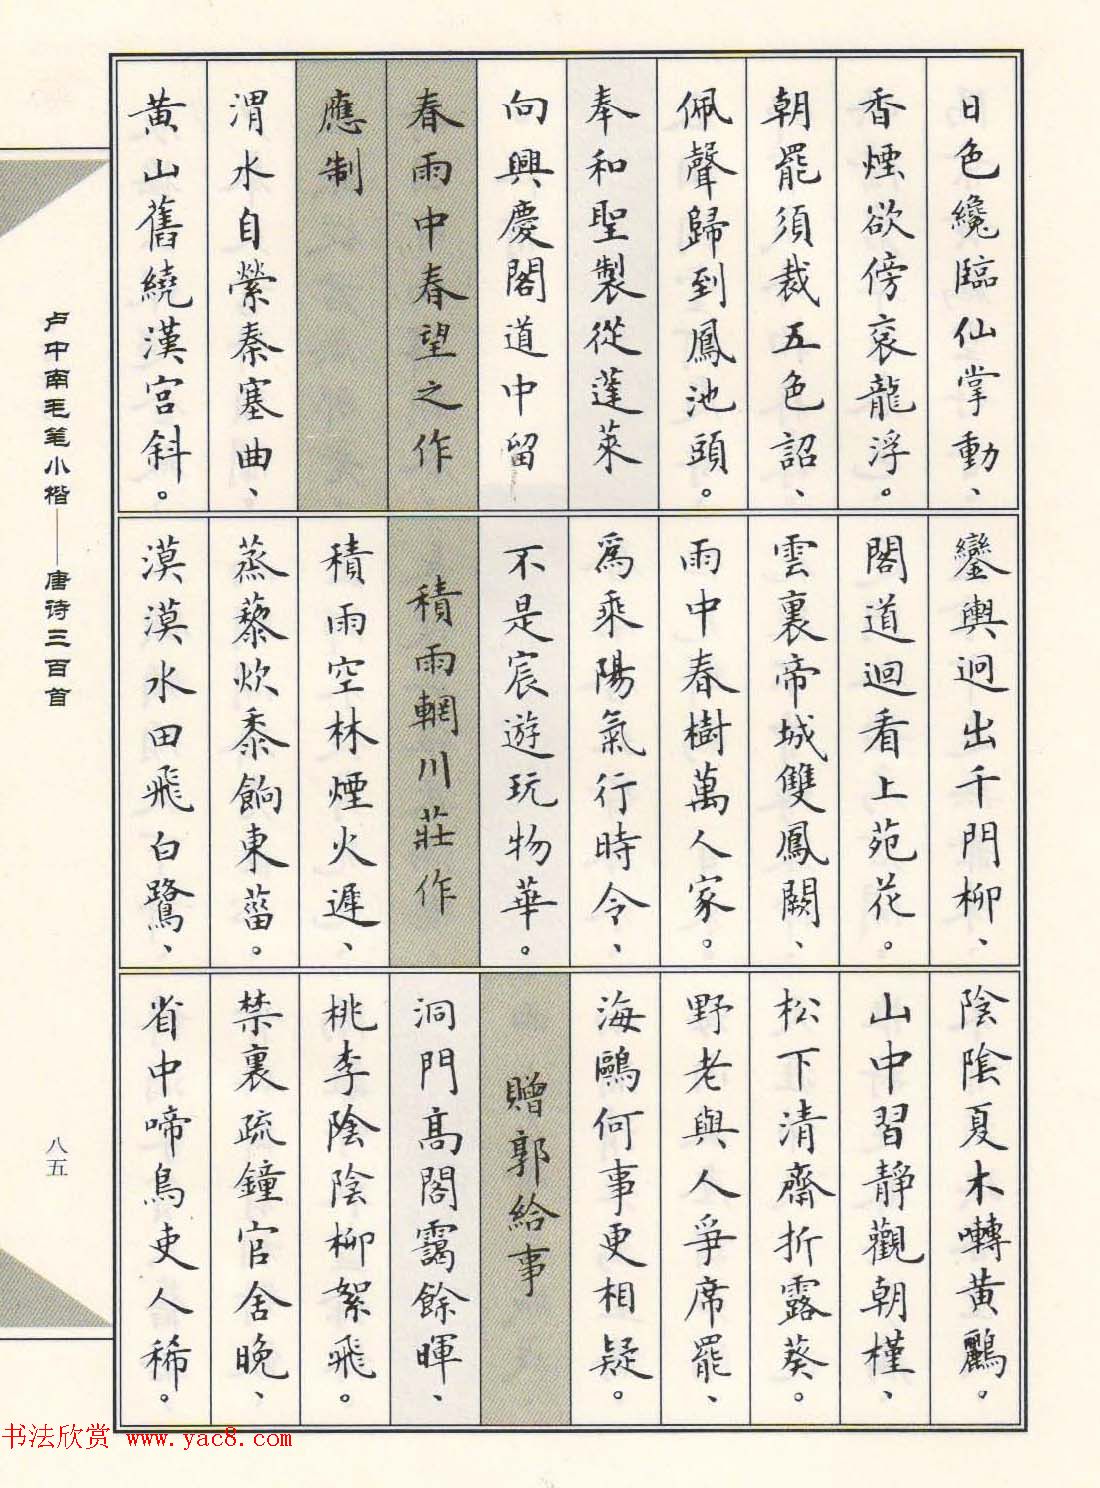 日色纔臨仙掌動、
香煙欲傍袞龍浮。
朝罷須裁五色詔、
佩聲歸到鳳池頭。
奉和聖製從蓬萊
向興慶閣道中留
春雨中春望之作
應制
渭水自縈秦塞曲、
黃山舊繞漢宮斜。
鑾輿迥出千門柳、
閣道迴看上苑花。
雲裏帝城雙鳳闕、
雨中春樹萬人家。
爲乘陽氣行時令、
不是宸遊玩物華。
積雨輞川莊作
積雨空林煙火遲、
蒸藜炊黍餉東菑。
漠漠水田飛白鷺、
陰陰夏木囀黃鸝。
山中習靜觀朝槿、
松下清齋折露葵。
野老與人爭席罷、
海鷗何事更相疑。
贈郭給事
洞門高閣靄餘暉、
桃李陰陰柳絮飛。
禁裏疏鐘官舍晚、
省中啼鳥吏人稀。
卢中南毛笔小楷——唐诗三百首
八五
书法欣赏 www.yac8.com